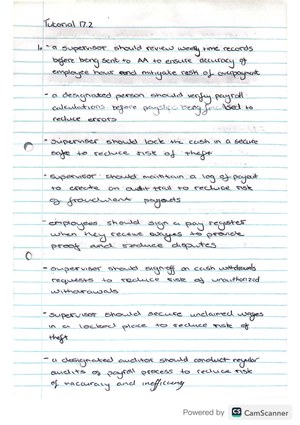 Tutorial 17.2
1. - a supervisor should review weekly time records
before being sent to AA to ensure accuracy of
employee hour and mitigate risk of overpayment
- a designated person should verify payroll
calculations before payslips being used to
reduce errors
- supervisor should lock the cash in a secure
safe to reduce risk of theft
- supervisor should maintain a log of payout
to create an audit trail to reduce risk
of fraudulent payouts
- employees should sign a pay register
when they receive wages to provide
proof and reduce disputes
- supervisor should sign off on cash withdrawals
requests to reduce risk of unauthorized
withdrawals
- supervisor should secure unclaimed wages
in a locked place to reduce risk of
theft
- a designated auditor should conduct regular
audits of payroll process to reduce risk
of inaccuracy and inefficiency
Powered by CS CamScanner